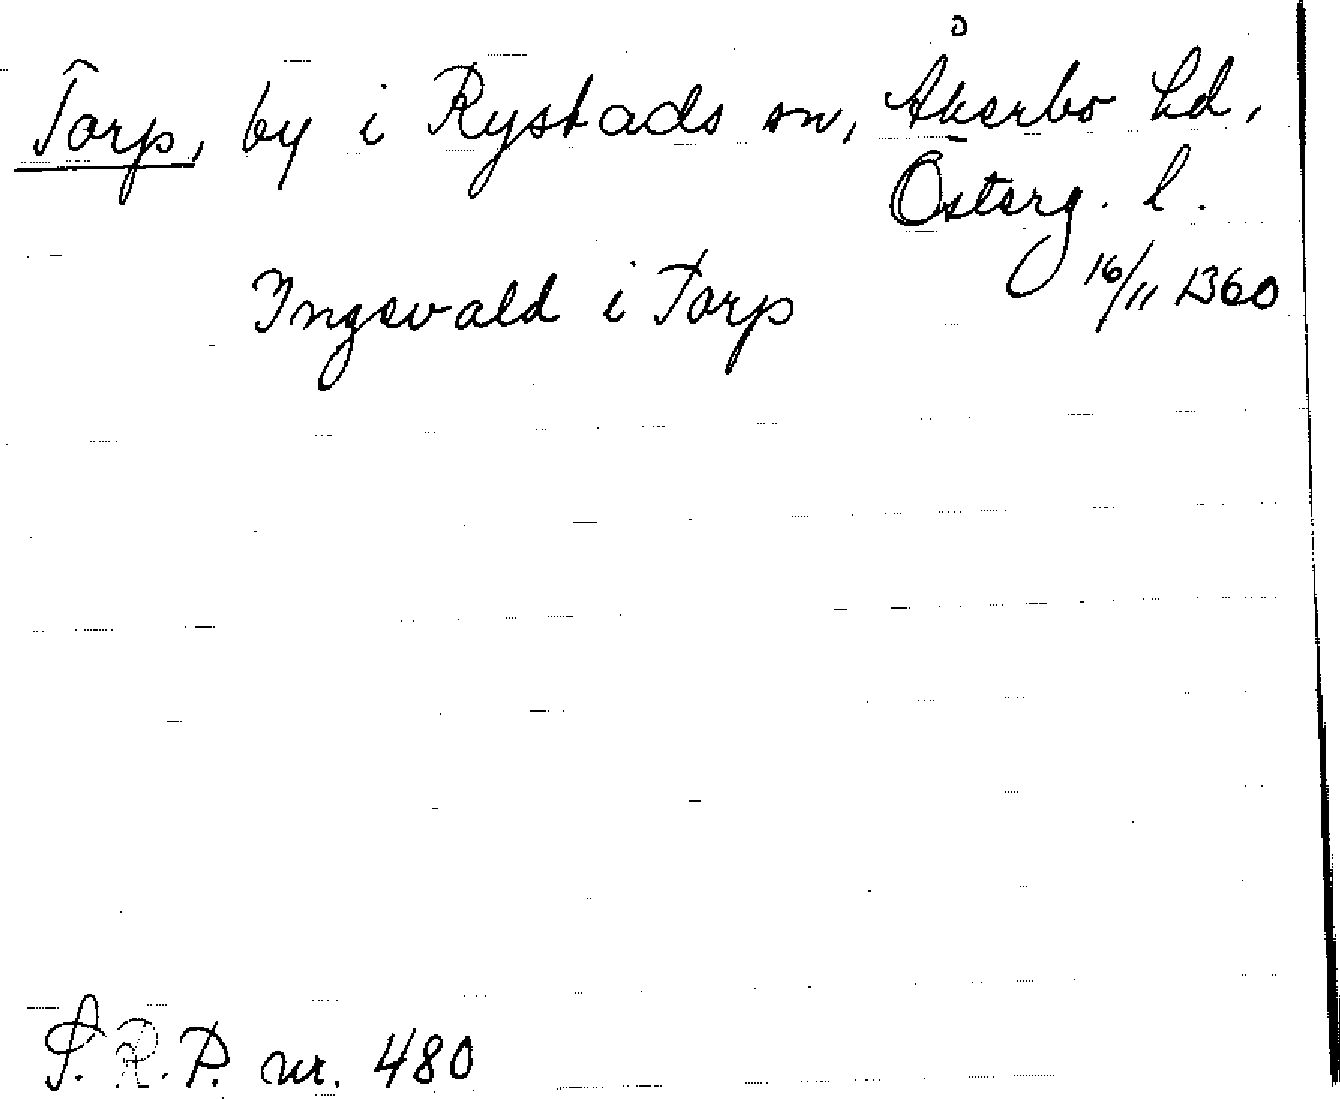 Torp, by i Rystads sn, Åkerbo hd,
Österg. l.
16/11 1360
Ingevald i Torp
S.R.P. nr. 480